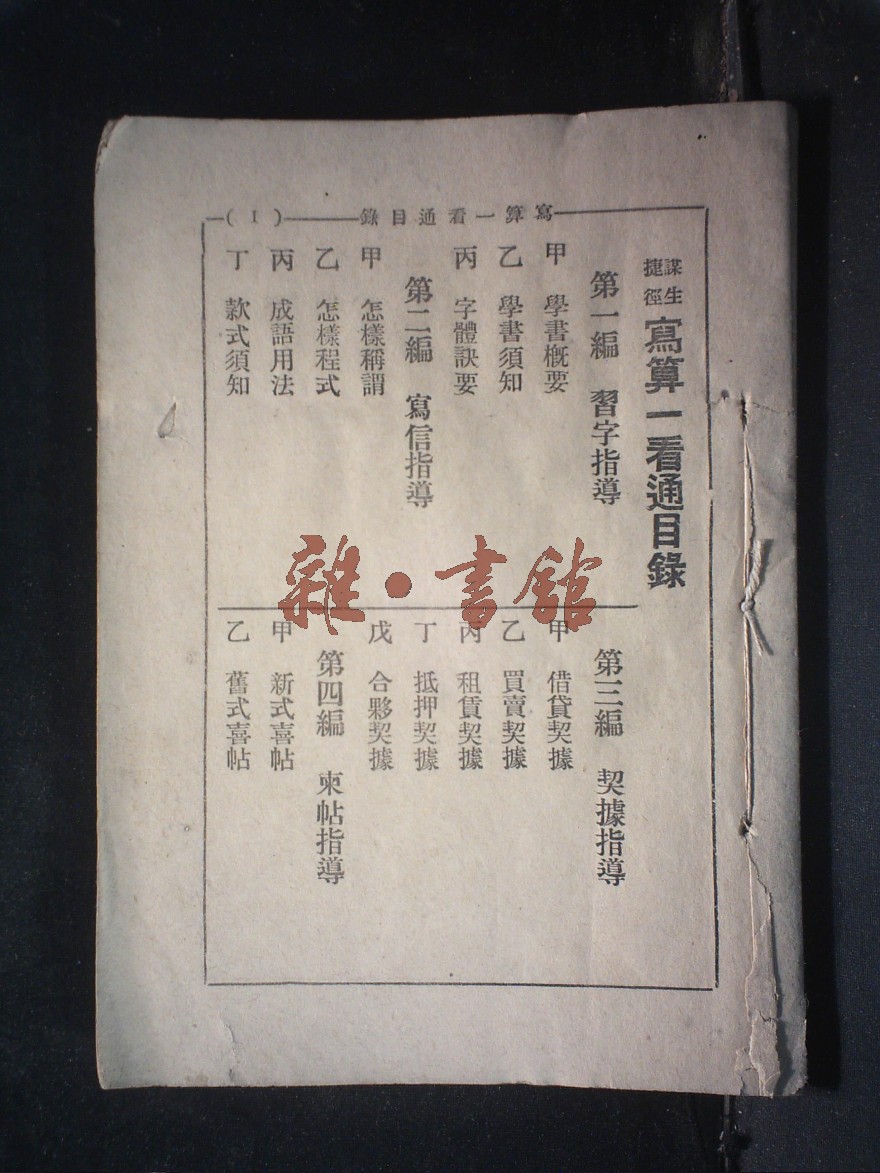 寫算一看通目錄 (1)
謀生捷徑 寫算一看通目錄
第一編 習字指導
甲 學書概要
乙 學書須知
丙 字體訣要
第二編 寫信指導
甲 怎樣稱謂
乙 怎樣程式
丙 成語用法
丁 款式須知
第三編 契據指導
甲 借貸契據
乙 買賣契據
丙 租賃契據
丁 抵押契據
戊 合夥契據
第四編 柬帖指導
甲 新式喜帖
乙 舊式喜帖
雜·書館